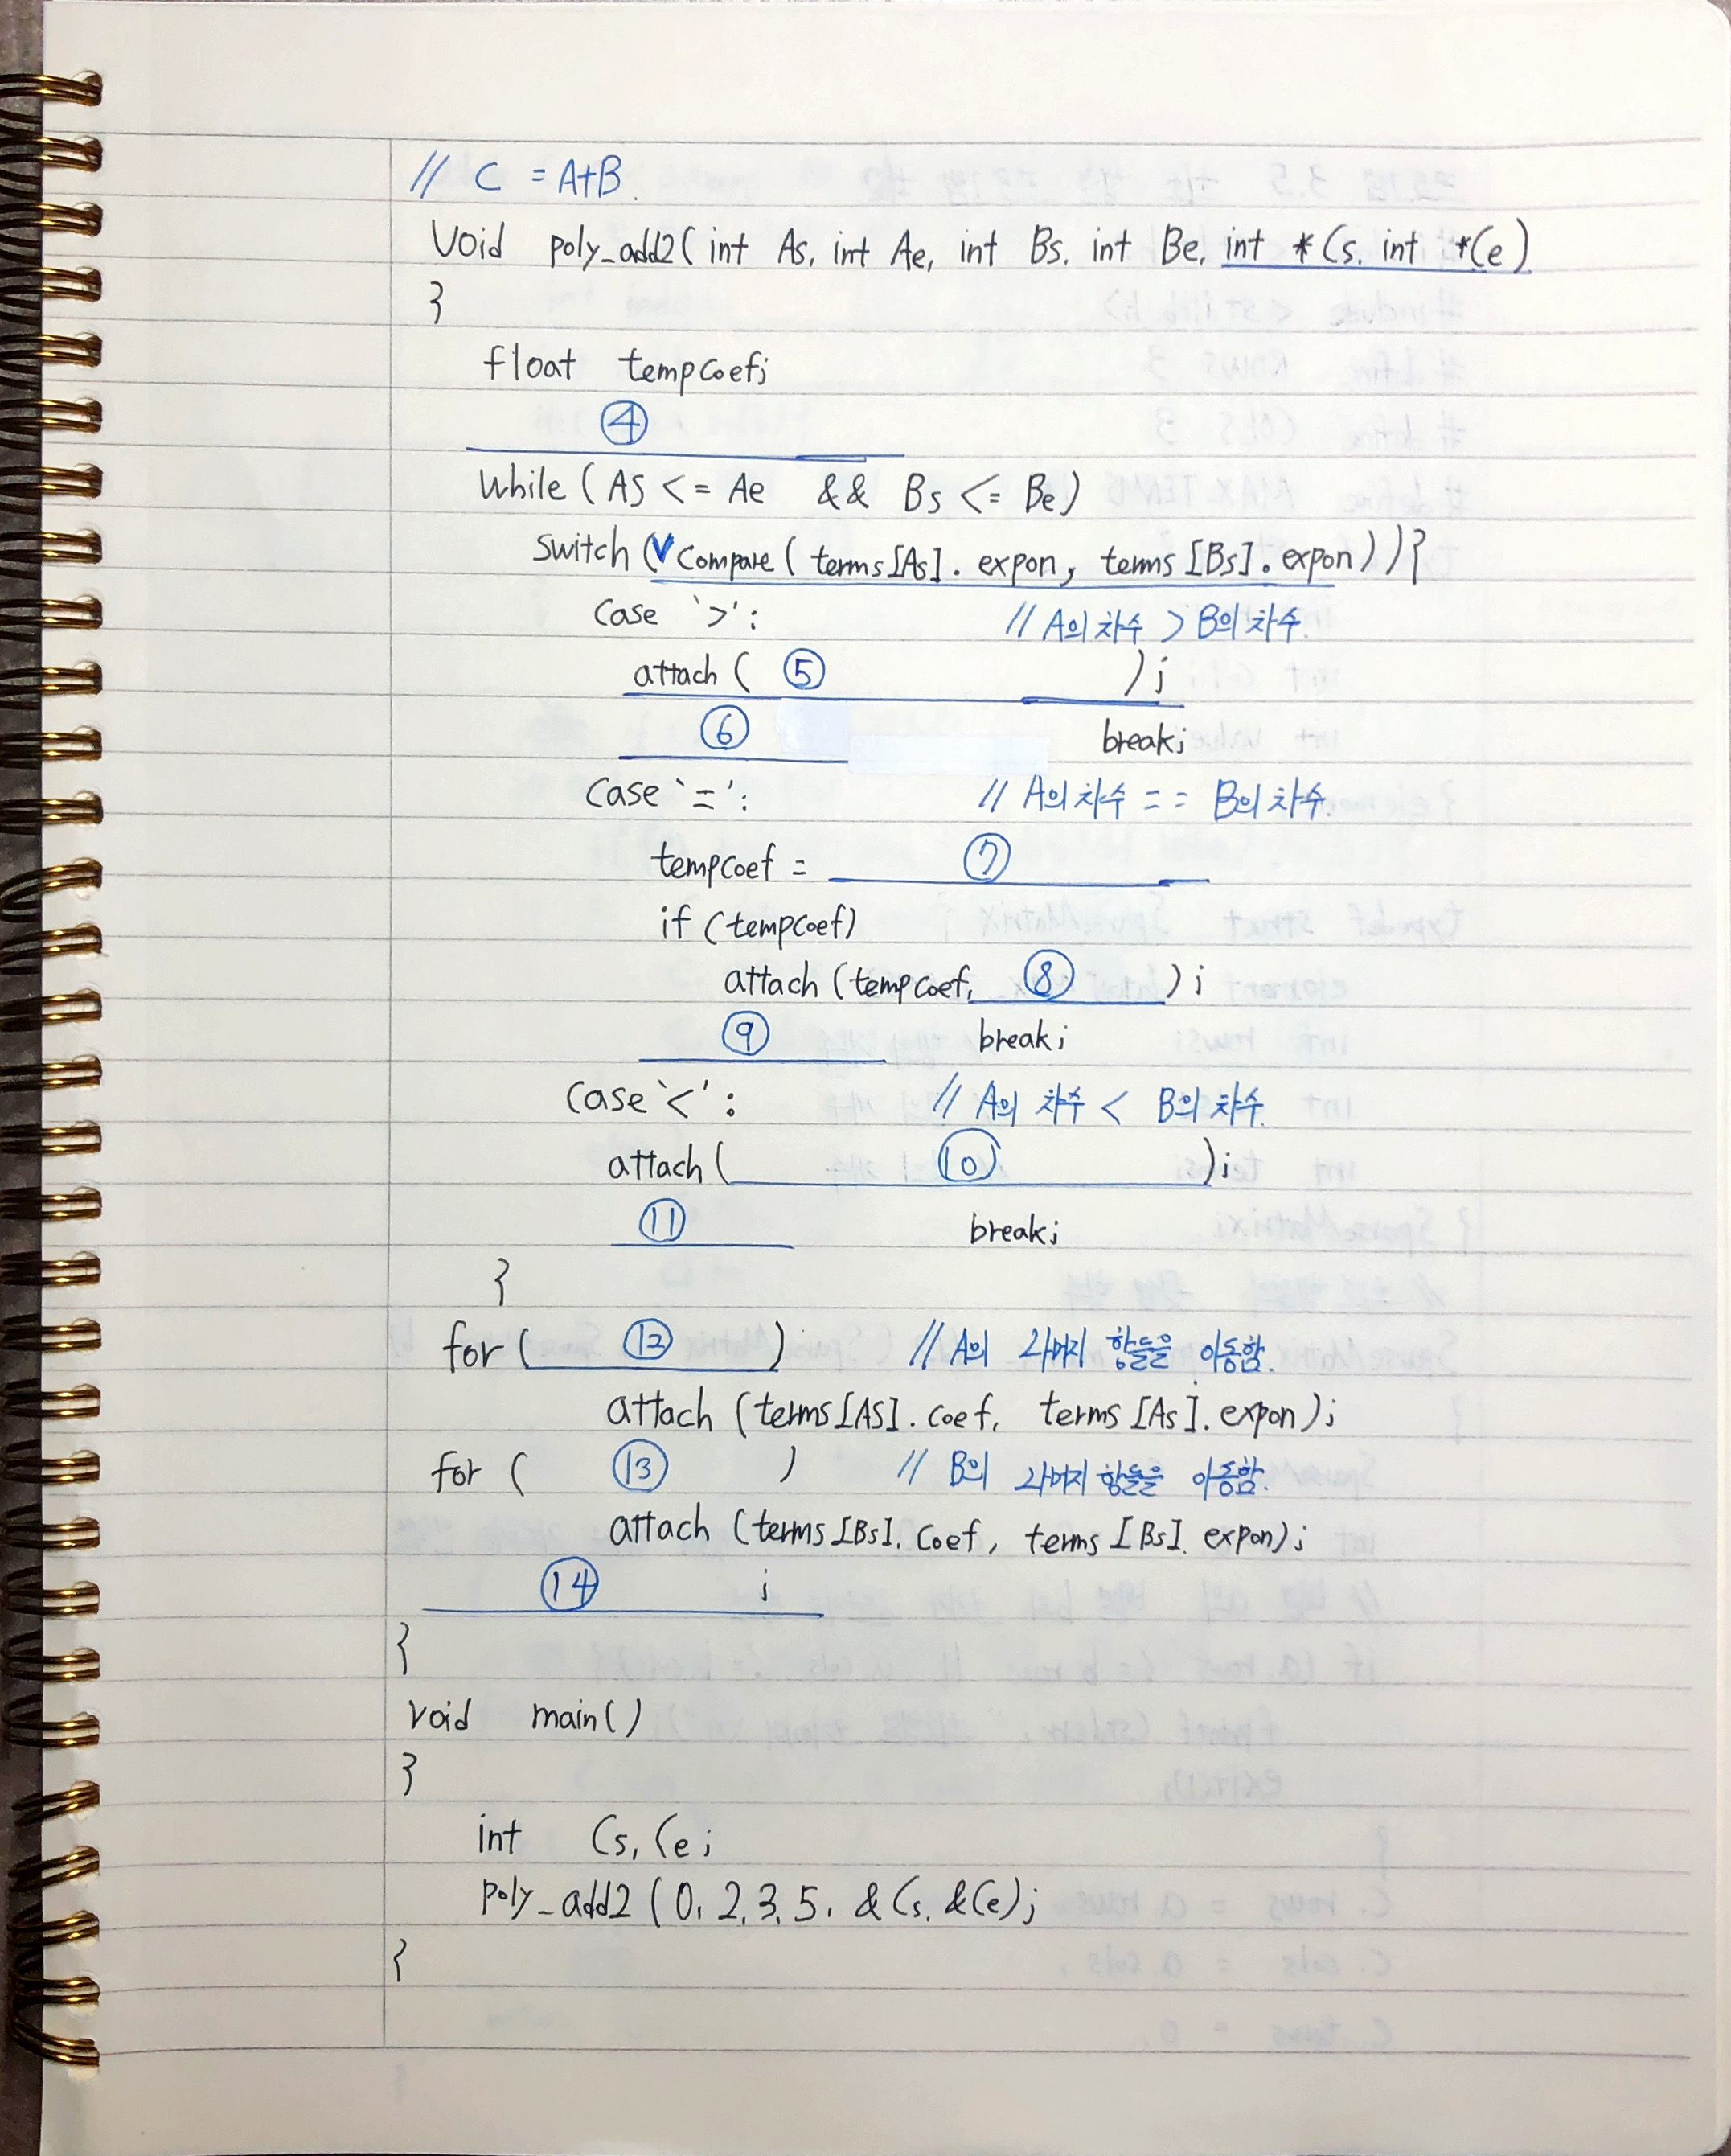 // C = A+B.
Void poly_add2( int As, int Ae, int Bs, int Be, int *Cs, int *Ce)
}
float tempcoef;
④
While ( As <= Ae && Bs <= Be)
switch (V Compare ( terms[As]. expon, terms [Bs]. expon ) ){
Case '>': // A의 차수 > B의 차수.
attach ( ⑤ );
⑥ break;
Case '=': // A의 차수 == B의 차수.
tempcoef = ⑦
if (tempcoef)
attach (tempcoef, ⑧ );
⑨ break;
Case '<': // A의 차수 < B의 차수.
attach ( ⑩ );
⑪ break;
}
for ( ⑫ ) // A의 나머지 항들을 이동함.
attach (terms[As]. coef, terms [As]. expon);
for ( ⑬ ) // B의 나머지 항들을 이동함.
attach (terms [Bs]. Coef, terms [Bs]. expon);
⑭ ;
}
void main()
}
int Cs, Ce;
poly_add2 (0, 2, 3, 5, &Cs, &Ce);
}